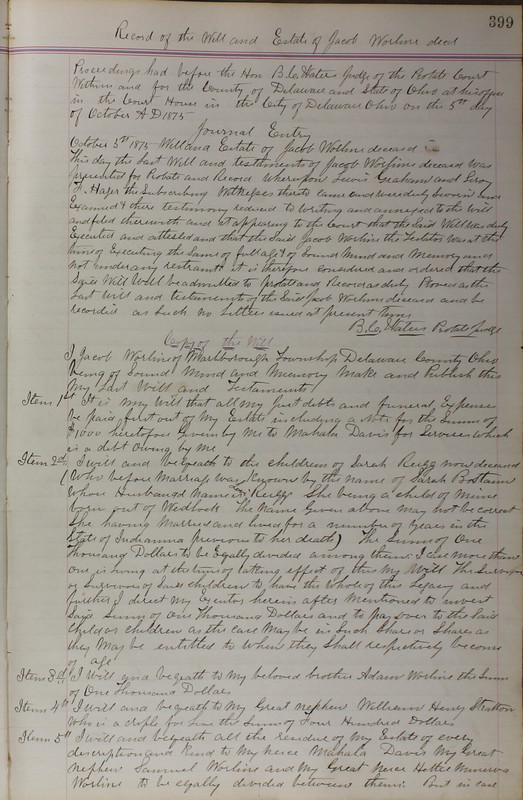 399
Record of the Will and Estate of Jacob Worline decd
Proceedings had before the Hon B.C. Waters Judge of the Probate Court
Within and for the County of Delaware and State of Ohio at his office
in the Court House in the City of Delaware Ohio on the 5th day
of October A.D 1875
Journal Entry
October 5th 1875 Will and Estate of Jacob Worline deceased
This day the Last Will and testament of Jacob Worline deceased was
presented for Probate and Record Whereupon Lewis Graham and Leroy
H. Hager the Subscribing Witnesses thereto came and were duly Sworn and
Examined & there testimony reduced to Writing and annexed to the Will
and filed therewith and it appearing to the Court that the Said Will was duly
Executed and attested and that the Said Jacob Worline the Testator was at the
time of Executing the Same of full age & of Sound Mind and Memory and
not under any restraint it is therefore considered and ordered that the
Said Will be admitted to probate and Record as duly Proven as the
Last Will and testament of the Said Jacob Worline deceased and be
recorded as Such no Letters issued at present time
B.C. Waters Probate Judge
Copy of the Will
I Jacob Worline of Marlborough Township Delaware County Ohio
being of Sound Mind and Memory Make and Publish this
My Last Will and Testament
Item 1st It is my Will that all my just debts and funeral Expenses
be paid first out of My Estate including a Note for the Sum of
$1000 heretofore Given by Me to Mahala Davis for Services which
is a debt owing by me
Item 2nd I will and bequeath to the children of Sarah Rugg now deceased
(Who before Marriage was Known by the name of Sarah Bostain
Whose Husbands Name is Rugg She being a child of Mine
born out of Wedlock The Name Given above may not be correct
She having Married and lived for a number of years in the
State of Indianna previous to her death) The Sum of One
Thousand Dollars to be Equally divided among them. In case more than
one is living at the time of taking effect of this My Will The Survivor
or Survivors of Said children to have the whole of this Legacy and
further I direct My Executor herein after Mentioned to invest
Said Sum of One Thousand Dollars and to pay over to the Said
child or children as the case May be in Such Share or Shares as
they May be entitled to when they Shall respectively become
of age
Item 3rd I will and bequeath to my beloved brother Adam Worline the Sum
of One Thousand Dollars
Item 4th I will and bequeath to My Great nephew William Henry Stratton
Who is a criple for Life the Sum of Four Hundred Dollars
Item 5th I will and bequeath all the residue of my Estate of every
description and Kind to My Niece Mahala Davis My Great
nephew Samuel Worline and My Great Niece Hettie Minerva
Worline to be equally divided between them. But in case